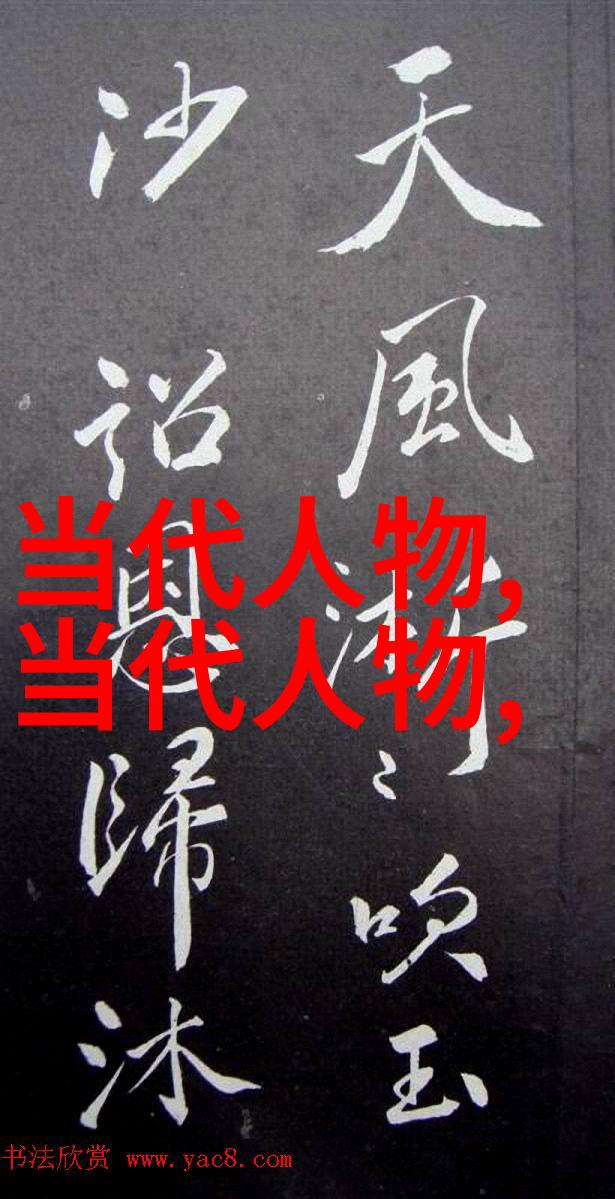 天風淅〻吹玉
沙詔恩歸沐
当代人物,
当代人物,
书法欣赏 www.yac8.com